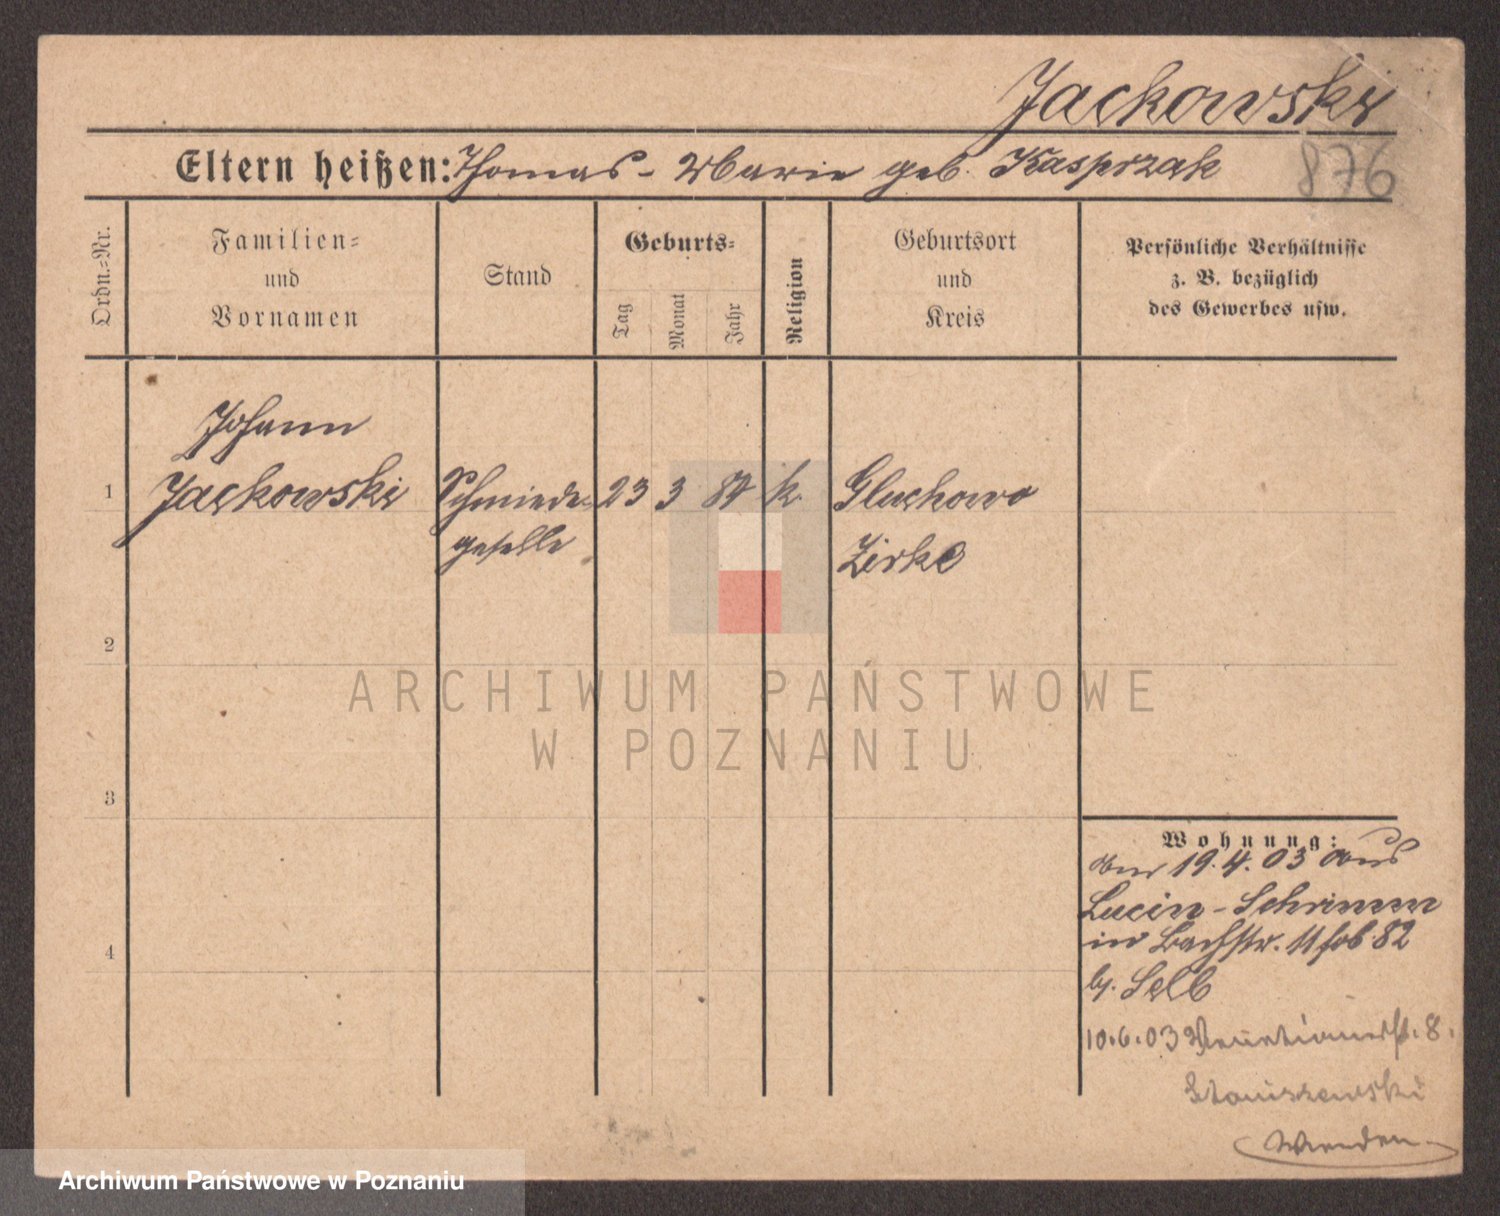 Jackowski
Eltern heißen: Thomas - Marie geb. Kasprzak
876
Ordn.-Nr.
Familien-
und
Vornamen
Stand
Geburts-
Tag
Monat
Jahr
Religion
Geburtsort
und
Kreis
Persönliche Verhältnisse
z. B. bezüglich
des Gewerbes usw.
Johann
1 Jackowski Schmiede- 23 3 84 k. Gluchowo
geselle Zirke
2
3
4
ARCHIWUM PAŃSTWOWE
W POZNANIU
Wohnung:
am 19.4.03 aus
Lucin - Schrimm
in Bachstr. 11
b. Selb
10.6.03 8.
Staniszewski
Wenden
Archiwum Państwowe w Poznaniu